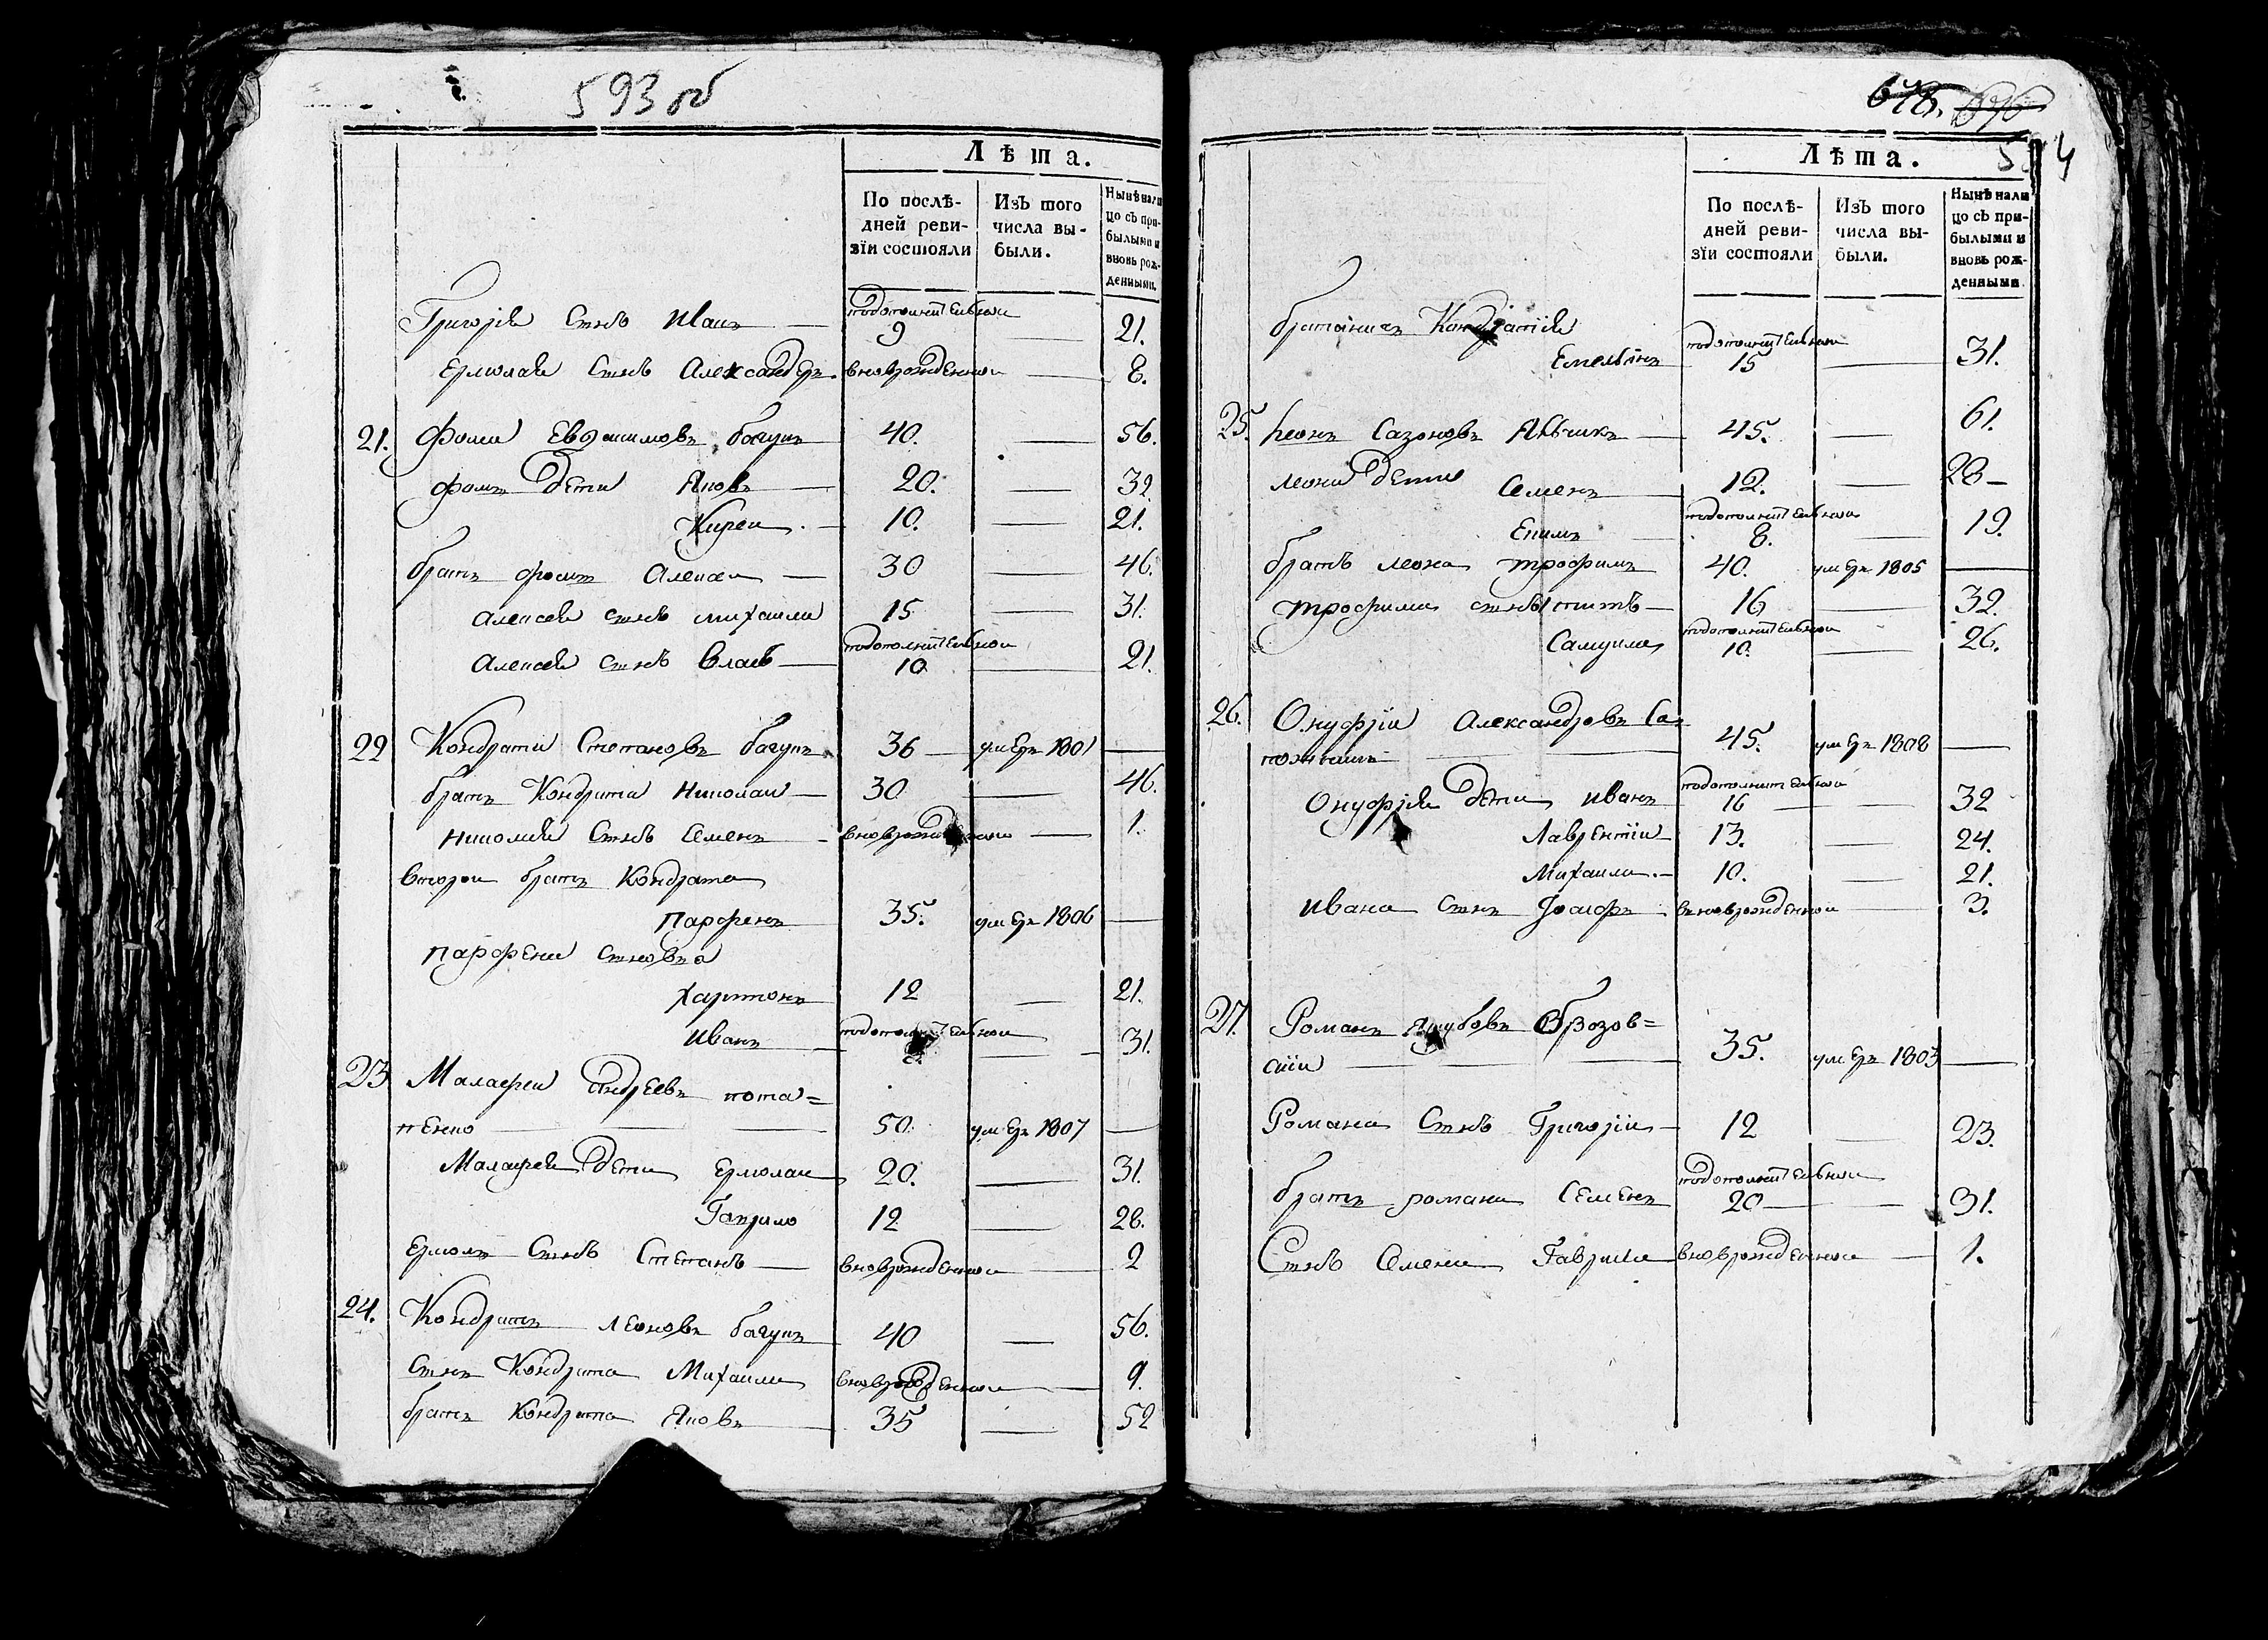 593 об
Лѣта.
По послѣ-
дней реви-
зїи состояли
Изъ того
числа вы-
были.
Нынѣ нали
цо съ при-
былыми и
вновь рож-
денными.
Григорїя Сынъ Иванъ — подополнительной 9 — 21.
Ермолая Сынъ Александръ. вноврожденной — 8.
21. Фома Евдокимовъ багунъ 40. — 56.
Фомы дети Яковъ — 20. — 32.
Кирей. — 10. — 21.
братъ Фомы Алексей — 30 — 46.
Алексея сынъ михаила 15 — 31.
Алексея сынъ Власъ — подополнительной 10 — 21.
22 Кондратъ Степановъ багунъ 36 — умеръ 1801 —
братъ Кондрата Николаи — 30 — 46.
Николая Сынъ Семенъ — вноврожденной — 1.
второй братъ Кондрата
Парфенъ 35. умеръ 1806 —
Парфена Сыновья
Харитонъ 12 — 21.
Иванъ подополнительной — 31.
23 Малафеи Андреевъ пота=
пенко — 50. умеръ 1807 —
Малафея дети Ермолаи 20. — 31.
Гаврило 12 — 28.
Ермолы Сынъ Степанъ — вноврожденной — 2
24. Кондратъ Леоновъ багунъ 40 — 56.
Сынъ Кондрата Михаила вноврожденной — 9.
братъ Кондрата Яковъ 35 — 52
678.
Лѣта.
По послѣ-
дней реви-
зїи состояли
Изъ того
числа вы-
были.
Нынѣ нали
цо съ при-
былыми и
вновь рож-
денными.
Кондратїя
Емельянъ подополнительной 15 — 31.
25. Леонъ Сазоновъ 45. — 61.
Леона дети Семенъ 12. — 28 —
подополнительной 8. — 19.
братъ Леона трофимъ 40. умеръ 1805 —
трофима сынъ титъ — 16 — 32.
Самуила подополнительной 10. — 26.
26. Онуфрїи Александровъ Са
пожникъ 45. умеръ 1808 —
Онуфрїя дети Иванъ подополнительной 16 — 32
Лаврентїи — 13. — 24.
Михаила. — 10. — 21.
Ивана Сынъ Іосифъ вноврожденной — 3.
27. Романъ Якубовъ
35. умеръ 1803 —
Романа Сынъ Григорїи — 12 — 23.
братъ романа Семенъ подополнительной 20 — 31.
Сынъ Семена Гаврила вноврожденной — 1.